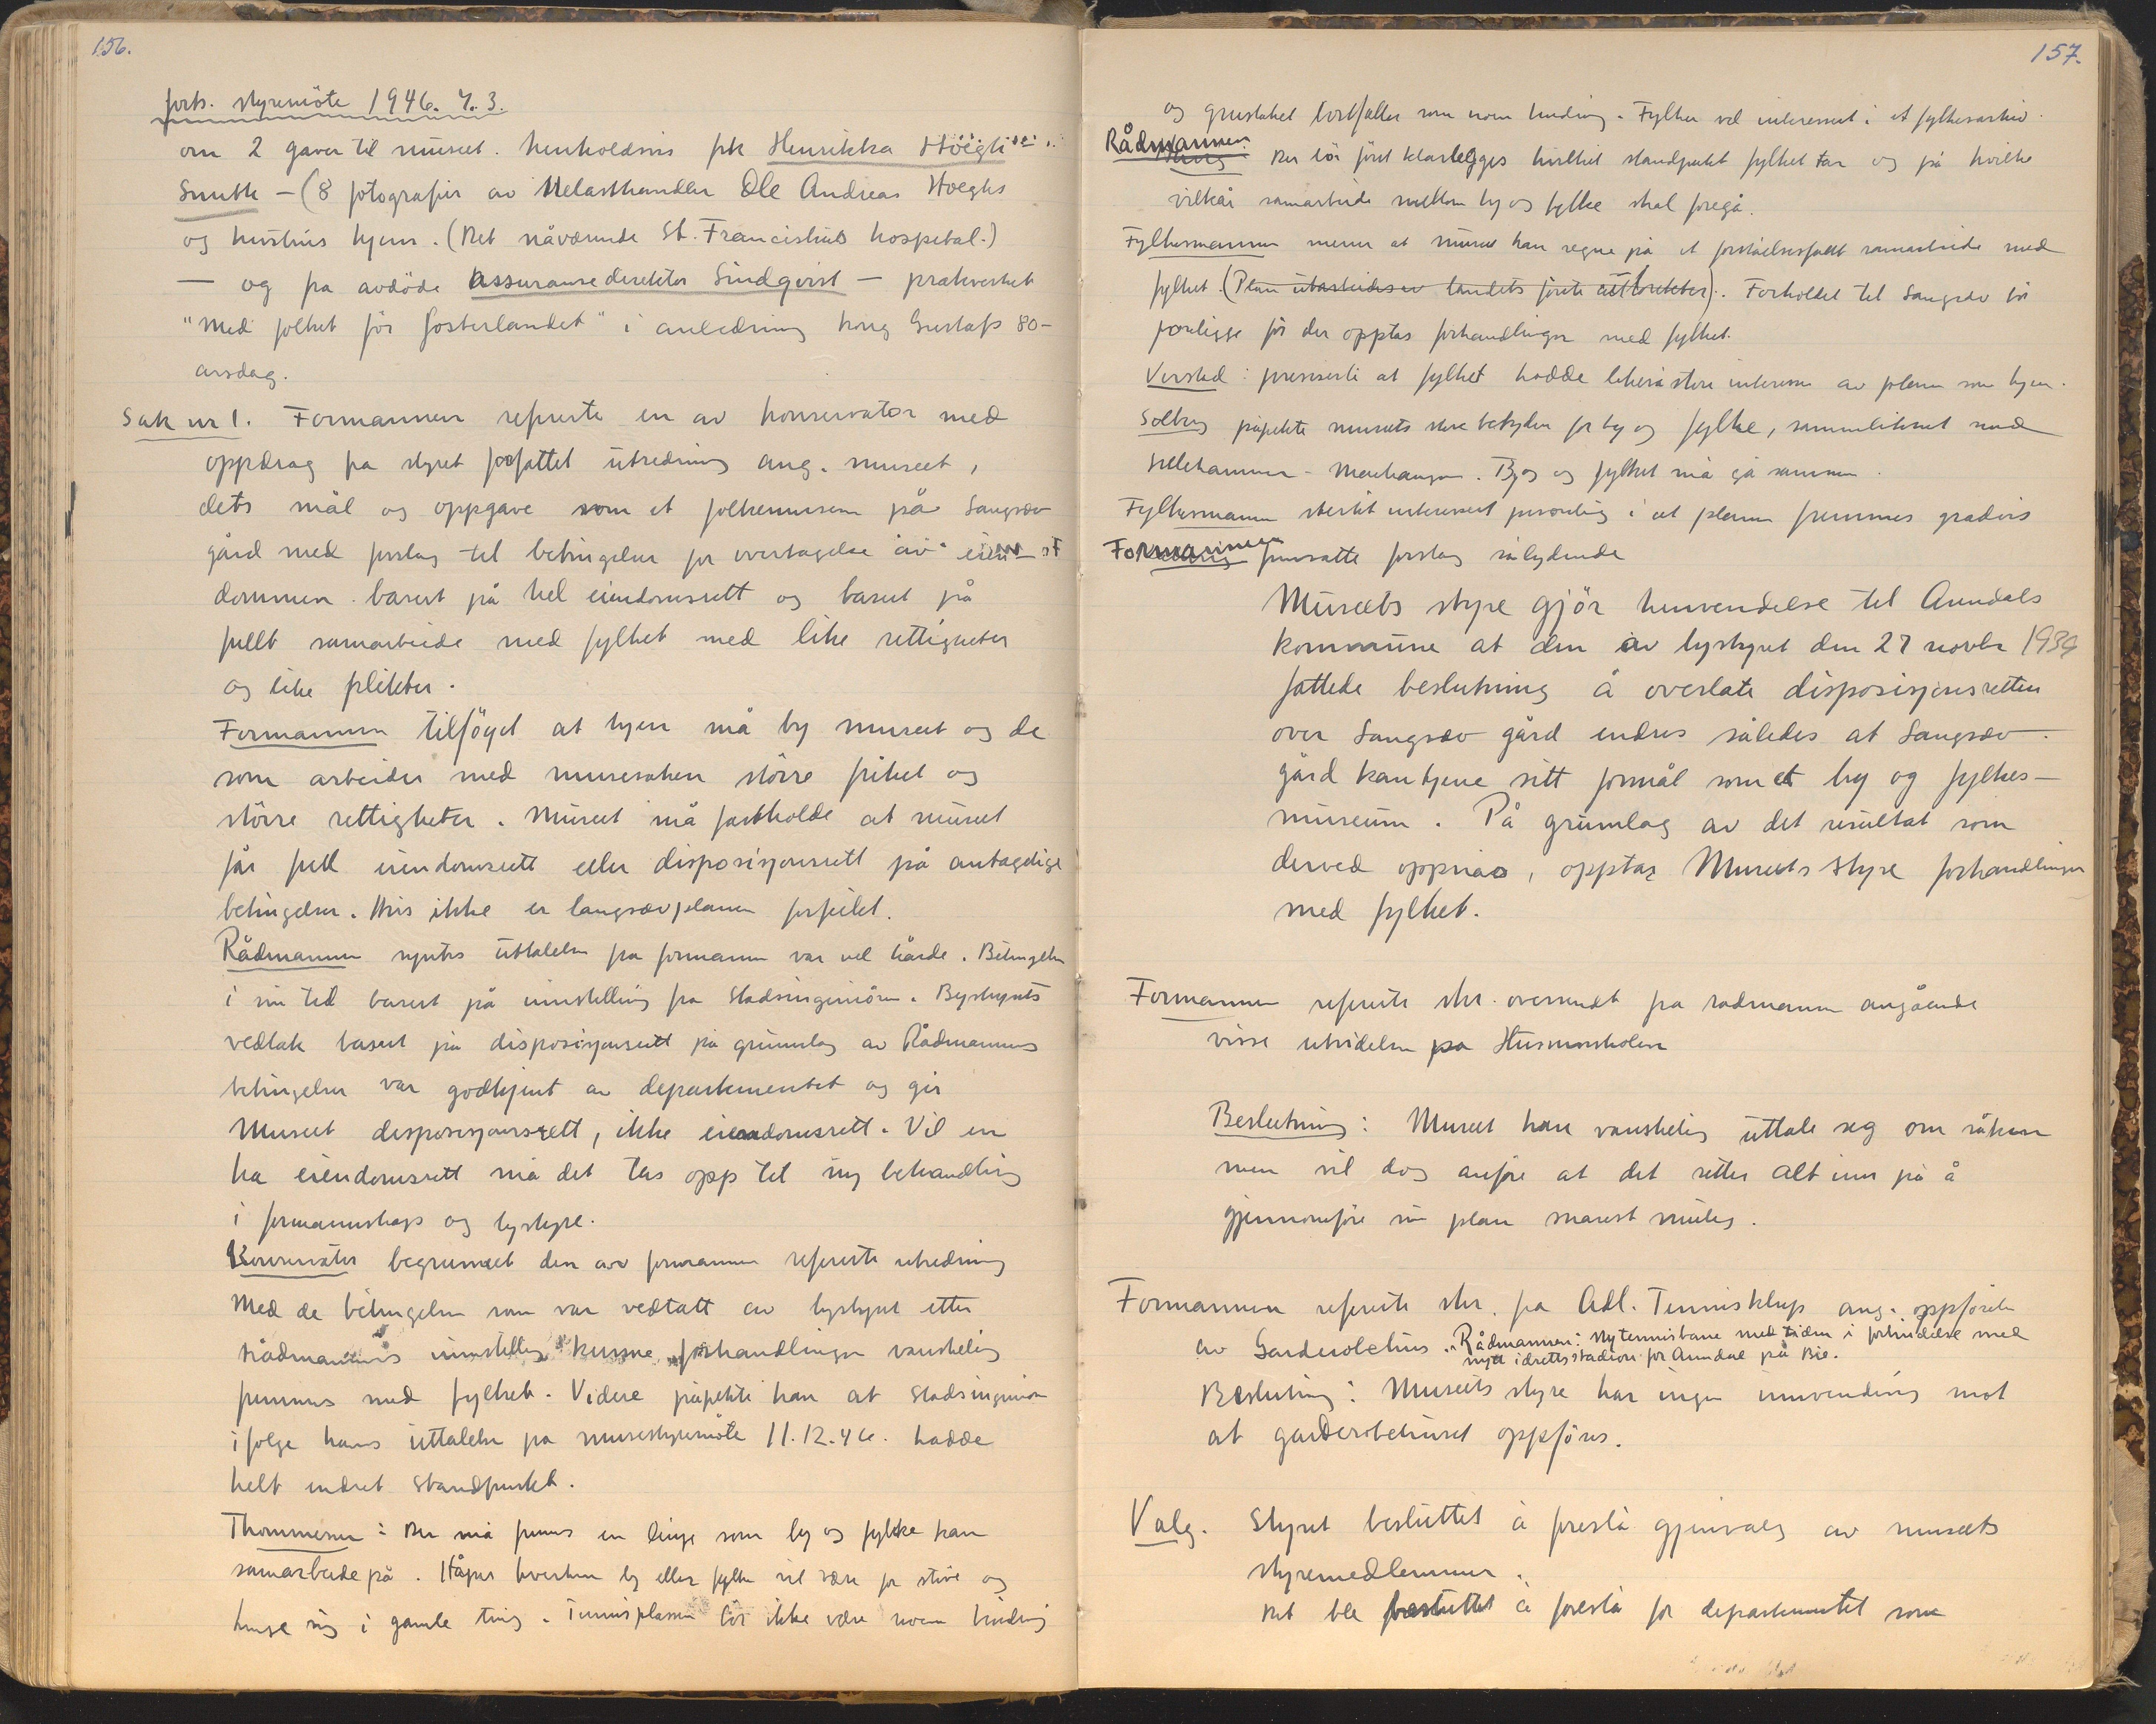 156.
forts. styremöte 1946. 7. 3.
om 2 gaver til museet. henholdsvis frk Henrikka Höegh
Smith – (8 fotografier av Trelasthandler Ole Andreas Höeghs
og hustrus hjem. (Det nåværende St. Franciskus hospital.)
— og fra avdöde Assuransedirektör Lindqvist — praktverket
"Med folket för fosterlandet" i anledning kong Gustafs 80-
årsdag.
Sak nr 1. Formannen refererte en av konservator med
oppdrag fra styret forfattet utredning ang. museet,
dets mål og oppgave som et folkemuseum på Langsæv
gård med forslag til betingelser for overtagelse av eien-
dommen basert på hel eiendomsrett og basert på
fullt samarbeide med fylket med like rettigheter
og like plikter.
Formannen tilföyet at byen må by museet og de
som arbeider med museisaken större frihet og
större rettigheter. Museet må fastholde at museet
får full eiendomsrett eller disposisjonsrett på antagelige
betingelser. Hvis ikke er langsævplanen forfeilet.
Rådmannen syntes uttalelsen fra formannen var vel hårde. Betingelsen
i sin tid basert på innstilling fra Stadsingeniören. Bystyrets
vedtak basert på disposisjonsrett på grunnlag av Rådmannens
betingelser var godkjent av departementet og gir
Museet disposisjonsrett, ikke eiendomsrett. Vil en
ha eiendomsrett må det tas opp til ny behandling
i formannskap og bystyre.
Konservator begrunnet den av formannen refererte utredning
Med de betingelser som var vedtatt av bystyret etter
rådmannens innstilling kunne forhandlinger vanskelig
fremmes med fylket. Videre påpekte han at stadsingeniören
ifölge hans uttalelse på museistyremöte 11.12.46. hadde
helt endret standpunkt.
Thommesen: Der må finnes en linje som by og fylke kan
samarbeide på. Håper hverken by eller fylke vil være for stive og
henge sig i gamle ting. Tennisplassen bör ikke være noen hindring
157.
og grustaket bortfaller som noen hindring. Fylket vel interessert i et fylkesarkiv.
Rådmannen Der bör först klarlegges hvilket standpunkt fylket tar og på hvilke
vilkår samarbeide mellom by og fylke skal foregå.
Fylkesmannen mener at museet kan regne på et forståelsesfullt samarbeide med
fylket. (Plan utarbeides av landets förste arkitekter). Forholdet til Langsæv bör
foreligge för der opptas forhandlinger med fylket.
Verstad: presiserte at fylket hadde likeså store interesser av planen som byen.
Solberg påpekte museets store betydning for by og fylke, sammenliknet med
Lillehammer - Maihaugen. By og fylket må gå sammen.
Fylkesmannen sterkt interessert personlig i at planen fremmes gradvis
Formannen fremsatte forslag sålydende
Museets styre gjör henvendelse til Arendals
kommune at den av bystyret den 27 novbr 1939
fattede beslutning å overlate disposisjonsretten
over Langsæv gård endres således at Langsæv
gård kan tjene sitt formål som et by og fylkes-
museum. På grunnlag av det resultat som
derved oppnåes, opptar Museets styre forhandlinger
med fylket.
Formannen refererte skr. oversendt fra rådmannen angående
visse utvidelser på Husmorskolen
Beslutning: Museet kan vanskelig uttale seg om saken
men vil dog anföre at det setter alt inn på å
gjennomföre sin plan snarest mulig.
Formannen refererte skr. fra Adl. Tennisklub ang. oppförelse
av Garderobehus. Rådmannen: Ny tennisbane med tiden i forbindelse med
nytt idrettsstadion for Arendal på Bie.
Beslutning: Museets styre har ingen innvending mot
at garderobehuset oppföres.
Valg. Styret besluttet å foreslå gjenvalg av museets
styremedlemmer.
Det ble besluttet å foreslå for departementet som